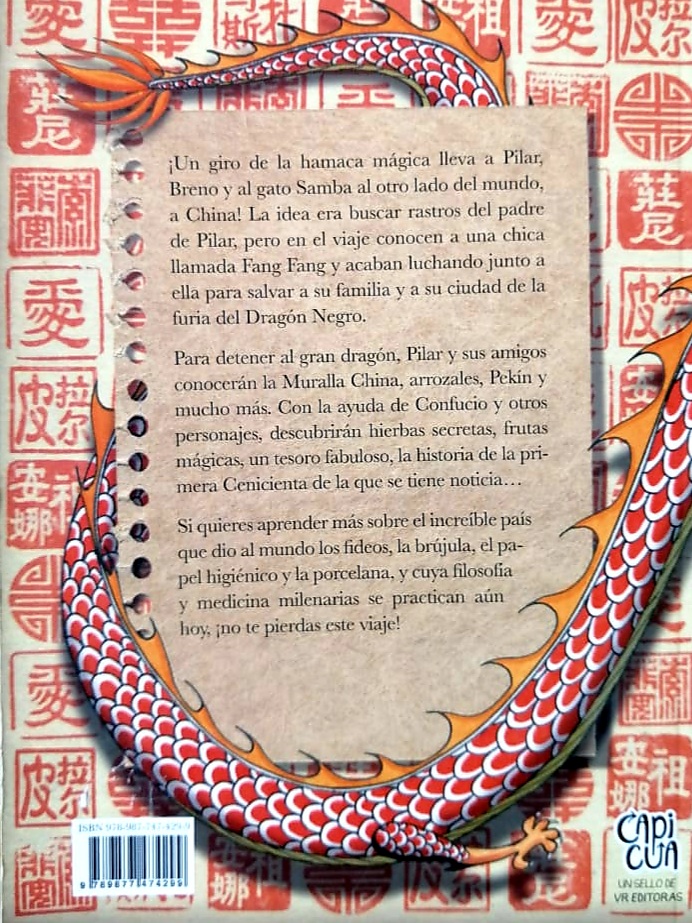 ¡Un giro de la hamaca mágica lleva a Pilar,
Breno y al gato Samba al otro lado del mundo,
a China! La idea era buscar rastros del padre
de Pilar, pero en el viaje conocen a una chica
llamada Fang Fang y acaban luchando junto a
ella para salvar a su familia y a su ciudad de la
furia del Dragón Negro.
Para detener al gran dragón, Pilar y sus amigos
conocerán la Muralla China, arrozales, Pekín y
mucho más. Con la ayuda de Confucio y otros
personajes, descubrirán hierbas secretas, frutas
mágicas, un tesoro fabuloso, la historia de la pri-
mera Cenicienta de la que se tiene noticia…
Si quieres aprender más sobre el increíble país
que dio al mundo los fideos, la brújula, el pa-
pel higiénico y la porcelana, y cuya filosofía
y medicina milenarias se practican aún
hoy, ¡no te pierdas este viaje!
ISBN 978-987-747-429-9
9 789877 474299
CAPI
CUA
UN SELLO DE
VR EDITORAS
莊
尼
皮拉
尔
安祖
娜